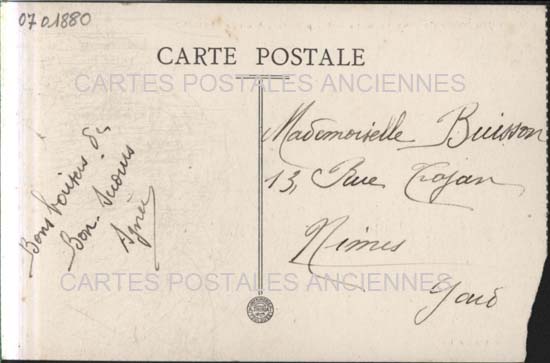 07 01880
CARTE POSTALE
CARTES POSTALES ANCIENNES
Mademoiselle Buisson
13, Rue Trajan
Nimes
Gard
Bons baisers de
Bon
Agnès
CARTES POSTALES ANCIENNES